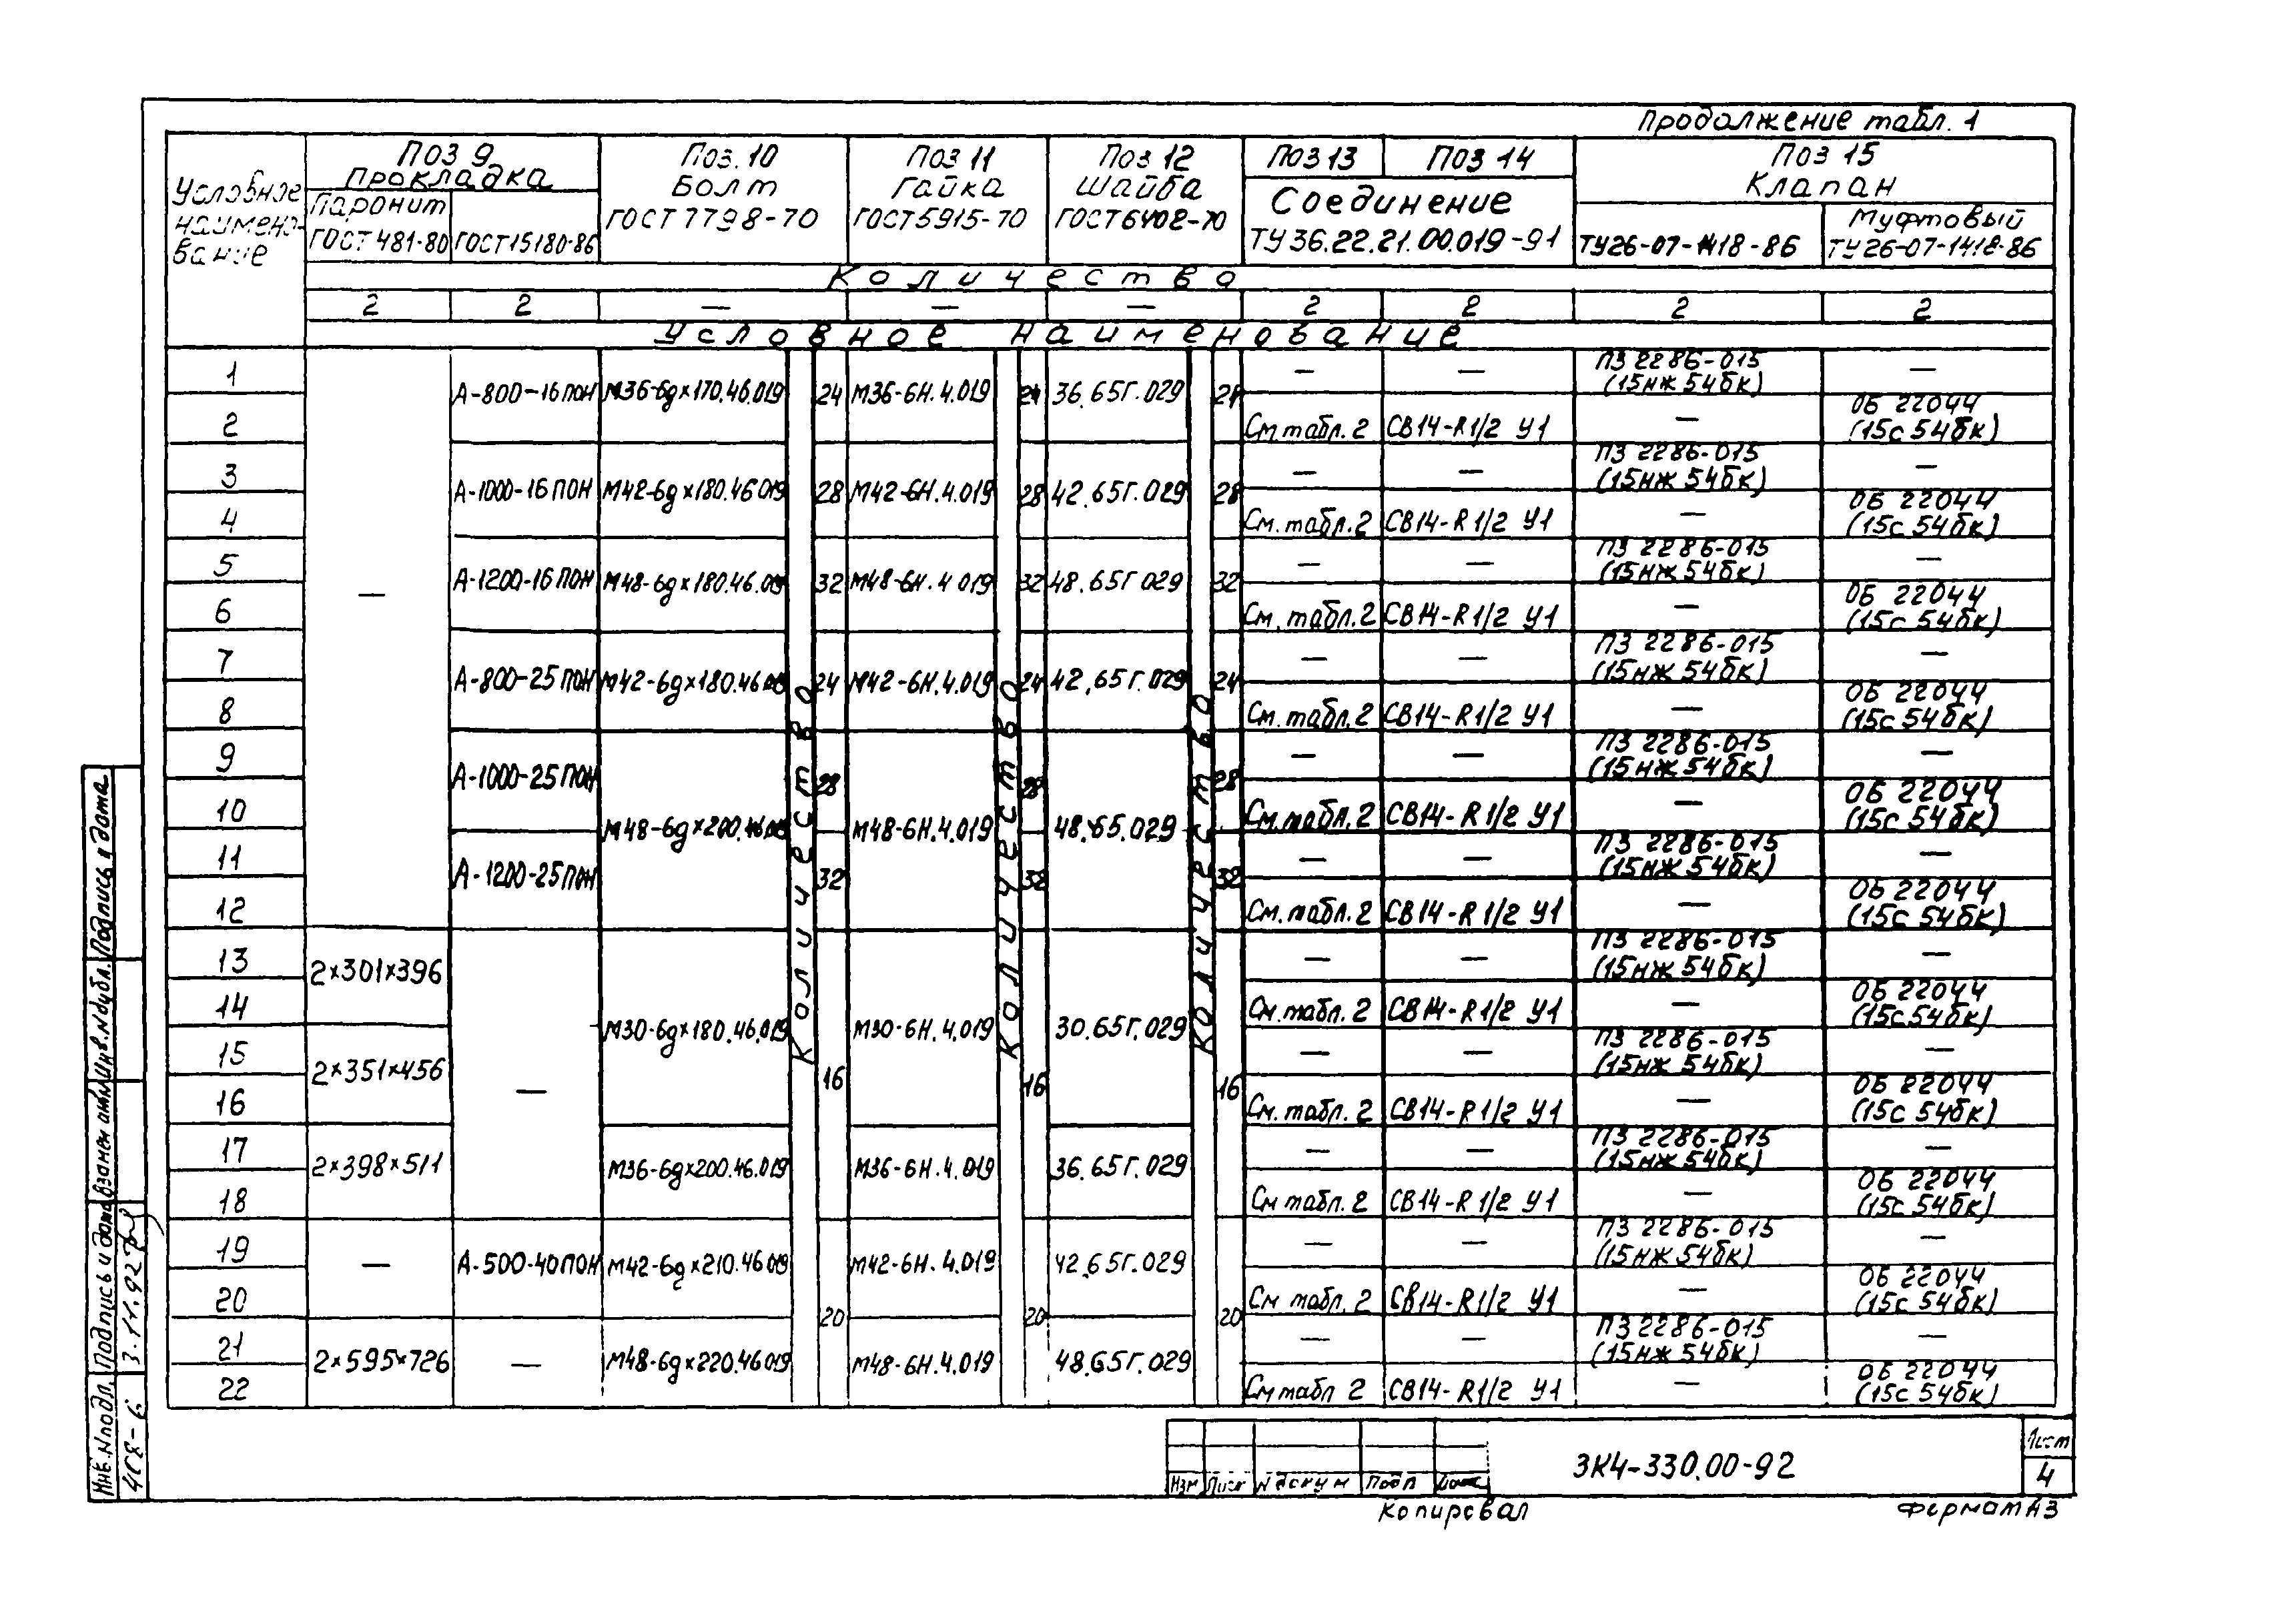 Продолжение табл. 1
Условное наимено- вание
Поз 9 Прокладка
Поз. 10 Болт ГОСТ 7798-70
Поз 11 Гайка ГОСТ 5915-70
Поз 12 Шайба ГОСТ 6402-70
Поз 13
Поз 14
Поз 15 Клапан
Паронит ГОСТ 481-80
ГОСТ 15180-86
Соединение ТУ 36.22.21.00.019-91
ТУ26-07-1418-86
Муфтовый ТУ 26-07-1418-86
Количество
2 2 — — — 2 2 2 2
Условное наименование
1 — А-800-16 ПОН М36-6g×170.46.019 24 М36-6Н.4.019 24 36.65Г.029 24 — — ПЗ 2286-015 (15нж 54бк) —
2 См табл. 2 СВ14-R1/2 У1 — ОБ 22044 (15с 54бк)
3 А-1000-16 ПОН М42-6g×180.46.019 28 М42-6Н.4.019 28 42.65Г.029 28 — — ПЗ 2286-015 (15нж 54бк) —
4 См. табл. 2 СВ14-R1/2 У1 — ОБ 22044 (15с 54бк)
5 А-1200-16 ПОН М48-6g×180.46.019 32 М48-6Н.4 019 32 48.65Г 029 32 — — ПЗ 2286-015 (15нж 54бк) —
6 См. табл. 2 СВ14-R1/2 У1 — ОБ 22044 (15с 54бк)
7 А-800-25 ПОН М42-6g×180.46.019 24 М42-6Н.4.019 24 42.65Г.029 24 — — ПЗ 2286-015 (15нж 54бк) —
8 См. табл. 2 СВ14-R1/2 У1 — ОБ 22044 (15с 54бк)
9 А-1000-25 ПОН М48-6g×200.46.019 28 М48-6Н.4.019 28 48.65.029 28 — — ПЗ 2286-015 (15нж 54бк) —
10 См. табл. 2 СВ14-R1/2 У1 — ОБ 22044 (15с 54бк)
11 А-1200-25 ПОН 32 32 32 — — ПЗ 2286-015 (15нж 54бк) —
12 См. табл. 2 СВ14-R1/2 У1 — ОБ 22044 (15с 54бк)
13 2×301×396 — М30-6g×180.46.019 16 М30-6Н.4.019 16 30.65Г.029 16 — — ПЗ 2286-015 (15нж 54бк) —
14 См. табл. 2 СВ14-R1/2 У1 — ОБ 22044 (15с 54бк)
15 2×351×456 — — ПЗ 2286-015 (15нж 54бк) —
16 См. табл. 2 СВ14-R1/2 У1 — ОБ 22044 (15с 54бк)
17 2×398×511 М36-6g×200.46.019 М36-6Н.4.019 36.65Г.029 — — ПЗ 2286-015 (15нж 54бк) —
18 См табл. 2 СВ14-R1/2 У1 — ОБ 22044 (15с 54бк)
19 — А-500-40 ПОН М42-6g×210.46.019 20 М42-6Н.4.019 20 42.65Г.029 20 — — ПЗ 2286-015 (15нж 54бк) —
20 См табл. 2 СВ14-R1/2 У1 — ОБ 22044 (15с 54бк)
21 2×595×726 — М48-6g×220.46.019 М48-6Н.4.019 48.65Г.029 — — ПЗ 2286-015 (15нж 54бк) —
22 См табл 2 СВ14-R1/2 У1 — ОБ 22044 (15с 54бк)
Количество
Количество
Количество
Инв.N подл. Подпись и дата Взамен инв.N Инв.N дубл. Подпись и дата
3.11.92
Изм Лист N докум Подп Дата
ЗК4-330.00-92
Лист
4
Копировал
Формат А3